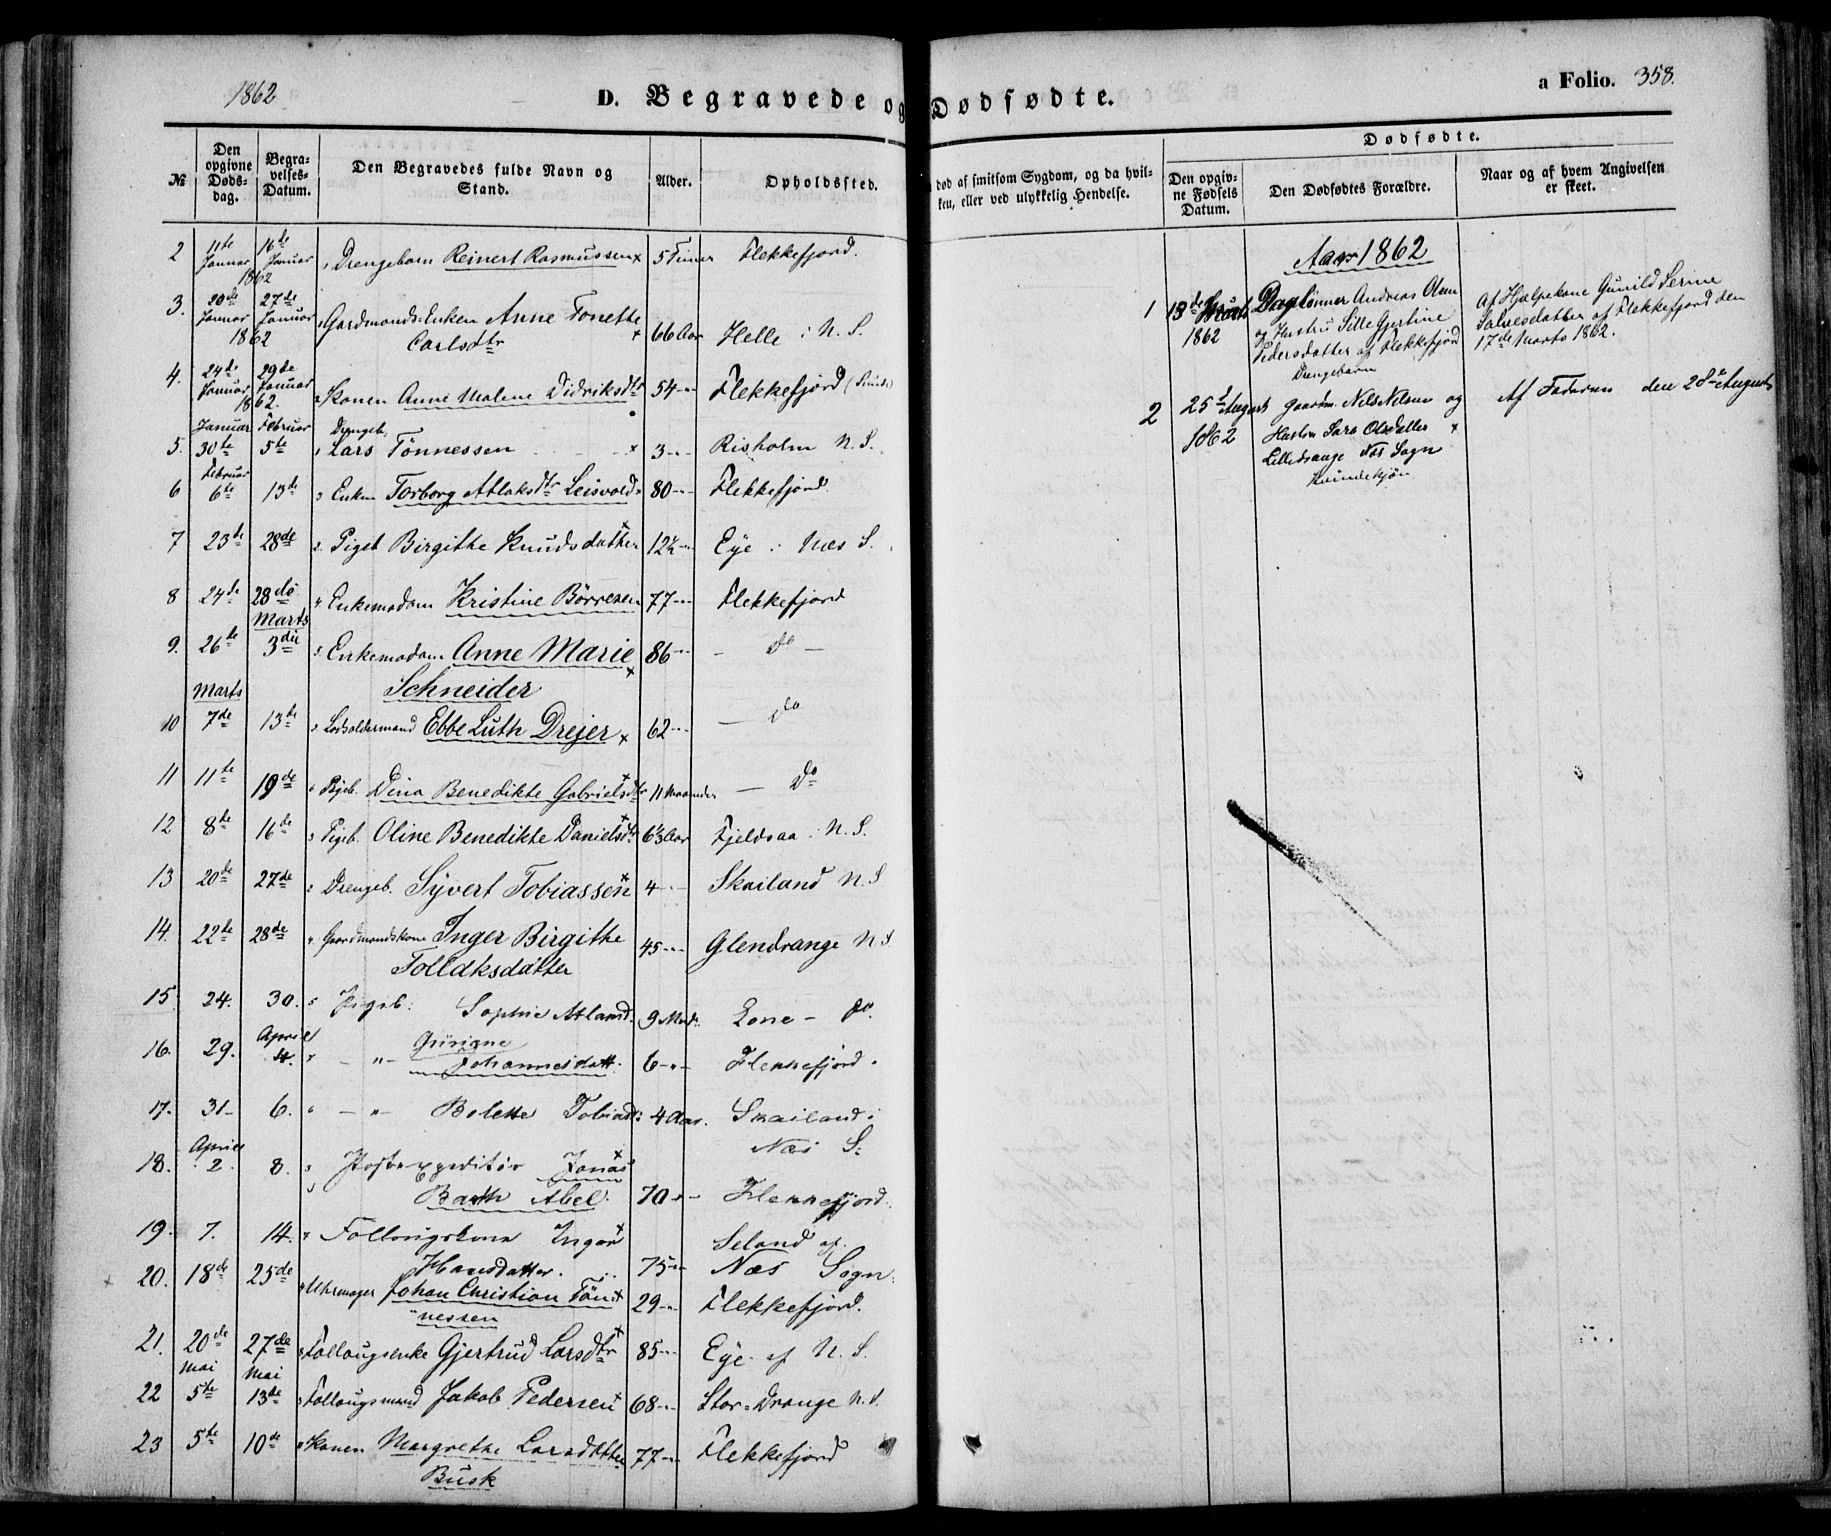 1862
D. Begravede og Dødfødte.
a Folio. 358.
№
Den opgivne Døds-dag.
Begra-velses-Datum.
Den Begravedes fulde Navn og Stand.
Alder.
Opholdssted.
død af smitsom Sygdom, og da hvil-
ken, eller ved ulykkelig Hendelse.
Dødfødte.
Den opgiv-ne Fødsels Datum.
Den Dødfødtes Forældre.
Naar og af hvem Angivelsen er skeet.
2 11te Januar 1862 16de Januar Drengebarn Reinert Rasmussen 5 Timer Flekkefjord.
3. 20de Januar 1862 27de Januar Gaardmands Enken Anne Tonette
Carlsdtr 66 Aar Helle i N. S.
4. 24de Januar 1862. 29de Januar Konen Anne Malene Didriksdtr 54 -"- Flekkefjord
Januar Februar Drengeb.
5. 30te 5te Lars Tønnessen 3 -"- Risholm N. S.
Februar
6 6te 13de Enken Torborg Atlaksdtr Leisvold 80 -"- Flekkefjord.
7 23de 28de Piget Birgithe Knudsdatter 12½ -"- Eye i Næs S.
8 24de 28de Enkemadam Kristine Börresen 77 -"- Flekkefjord
Marts
9. 26te 3die Enkemadam Anne Marie 86 -"- — do —
Schneider
Marts
10 7de 13de Lodsoldermand Ebbe Luth Drejer 62 -"- — do
11 11te 19de Pigeb. Dina Benedikte Gabrielsdtr 11 Maaneder — Do
12 8de 16de Pigeb. Oline Benedikte Danielsdtr 6½ Aar Fjeldsaa i N. S.
13 20de 27de Drengeb. Syvert Tobiassen 4 -"- Skailand N. S
14. 22de 28de Gaardmandskone Inger Birgithe 45 -"- Glendrange N. S
Tollaksdatter
15 24. 30. Pigeb: Sophie Atland 9 Mdr. Lone - do.
April
16. 29. 4. — " — Gurine
Johannesdatt. 6 -"- Flekkefjord.
17. 31 - 6. — " — Bolette Tobiasd: 4 Aar. Skailand i
Næs S:
April
18. 2. 8. Postexpeditør Jonas
Barth Abel. 70 -"- Flekkefjord.
19. 7. 14. Follougskone Inger
Hansdatter. 75 -"- Seland af
Næs Sogn.
20. 18de 25de Uhrmager Johan Christian Tön-
nessen 29 -"- Flekkefjord.
21. 20de 27de Follougsenke Gjertrud Larsdtr 85 -"- Eye af N. S.
Mai Mai
22 5te 13de Follougsmand Jakob Pedersen 68 -"- Stor-Drange N. S.
23 5te 10de Konen Margrethe Larsdatter 77 -"- Flekkefjord
Busk
Aar 1862
1 13de Marts 1862
Daglønner Andreas Olsen
og Hustru Sille Gjertine
Pedersdatter af Flekkefjord
Drengebarn
Af Hjelpekone Gunild Serine
Salvesdatter af Flekkefjord den
17de Marts 1862.
2 25de August 1862
Gaardm. Nils Nilsen og
Hustru Sara Olsdatter
Lilledrange Næs Sogn
Kvindekjøn
Af Faderen den 28de August